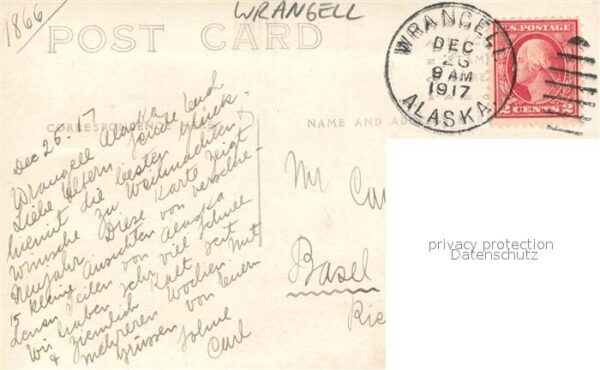 1866
WRANGELL
POST CARD
WRANGELL
DEC
26
9 AM
1917
ALASKA.
U.S. POSTAGE
2 CENTS 2
CORRESPONDENCE
NAME AND ADD
Dec 26. 17
Wrangell Alaska
Liebe Eltern, sende Euch
hiemit die besten Glück-
wünsche zu Weihnachten &
Neujahr Diese Karte zeigt
15 kleine Ansichten von verschie-
denen Teilen von Alaska
Wir haben sehr viel Schnee
& ziemlich kalt seit
mehreren Wochen. Mit
Grüssen von Euerm
Sohne
Carl
Mr Ca
Basel
Rie
privacy protection
Datenschutz